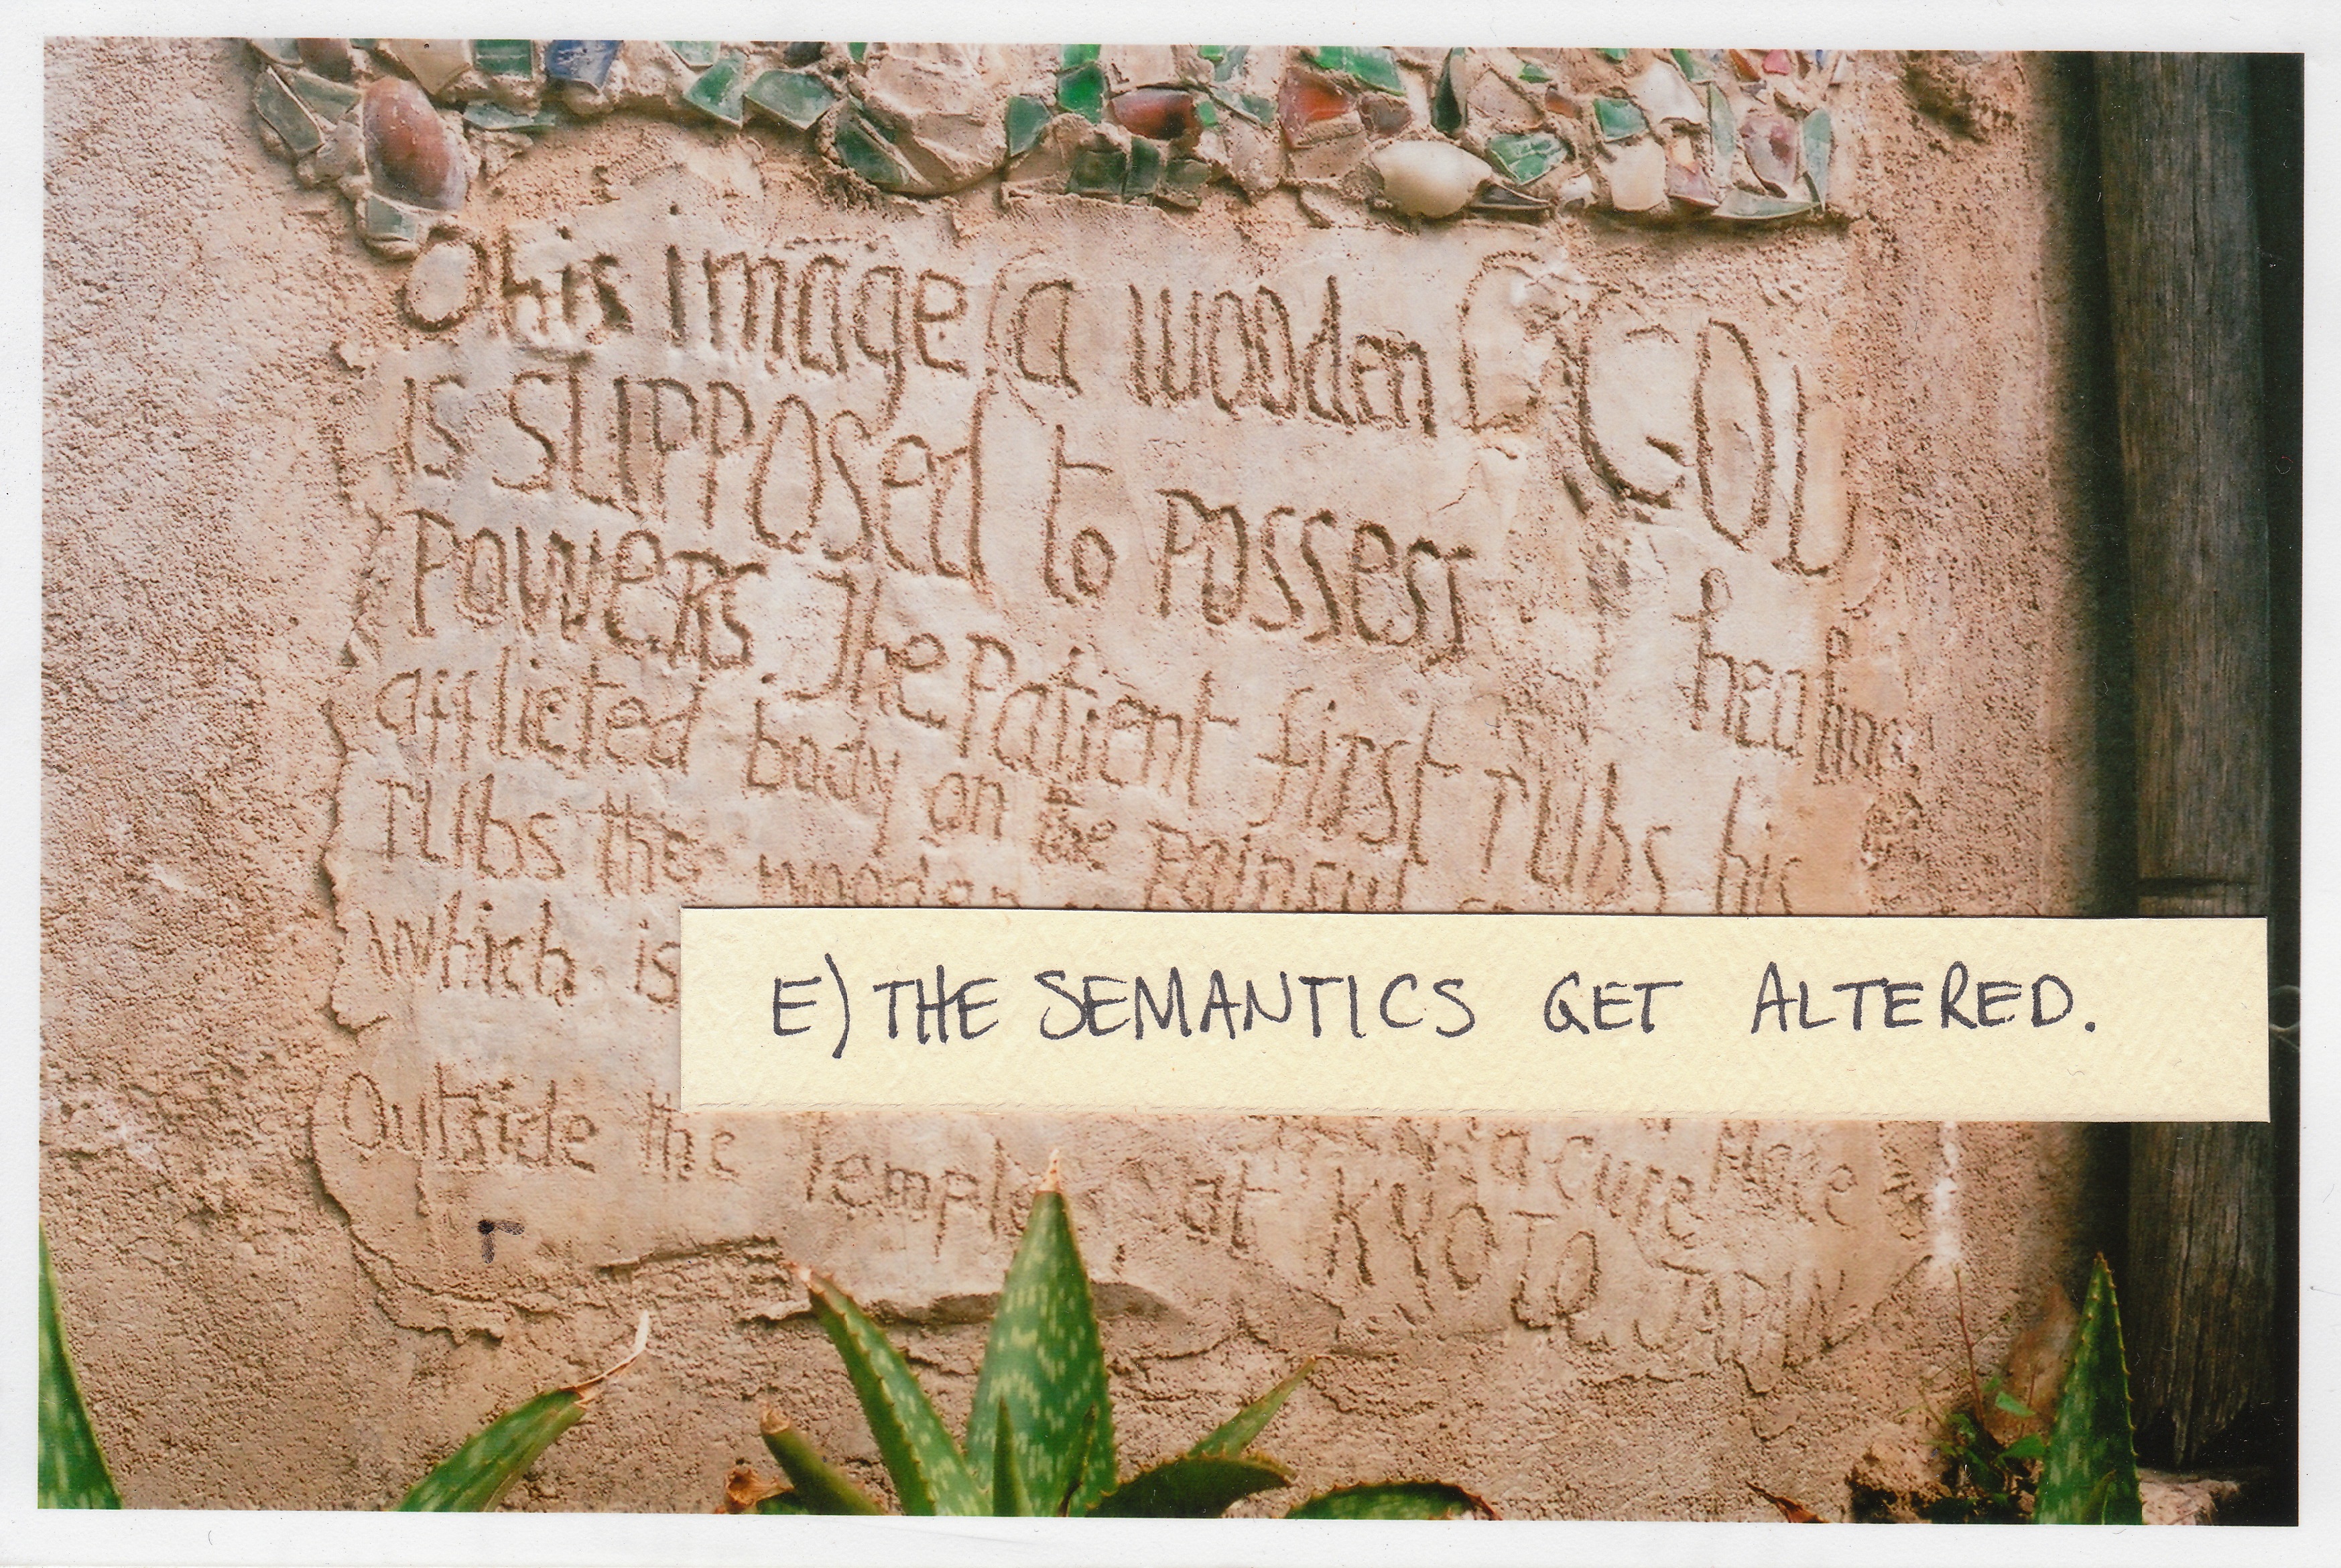 This image (a wooden GOD)
is supposed to possess healing
powers. The Patient first rubs his
afflicted body on the Painful
rubs the wooden
which is
E) THE SEMANTICS GET ALTERED.
a cure Here
Outside the Temple at KYOTO JAPAN